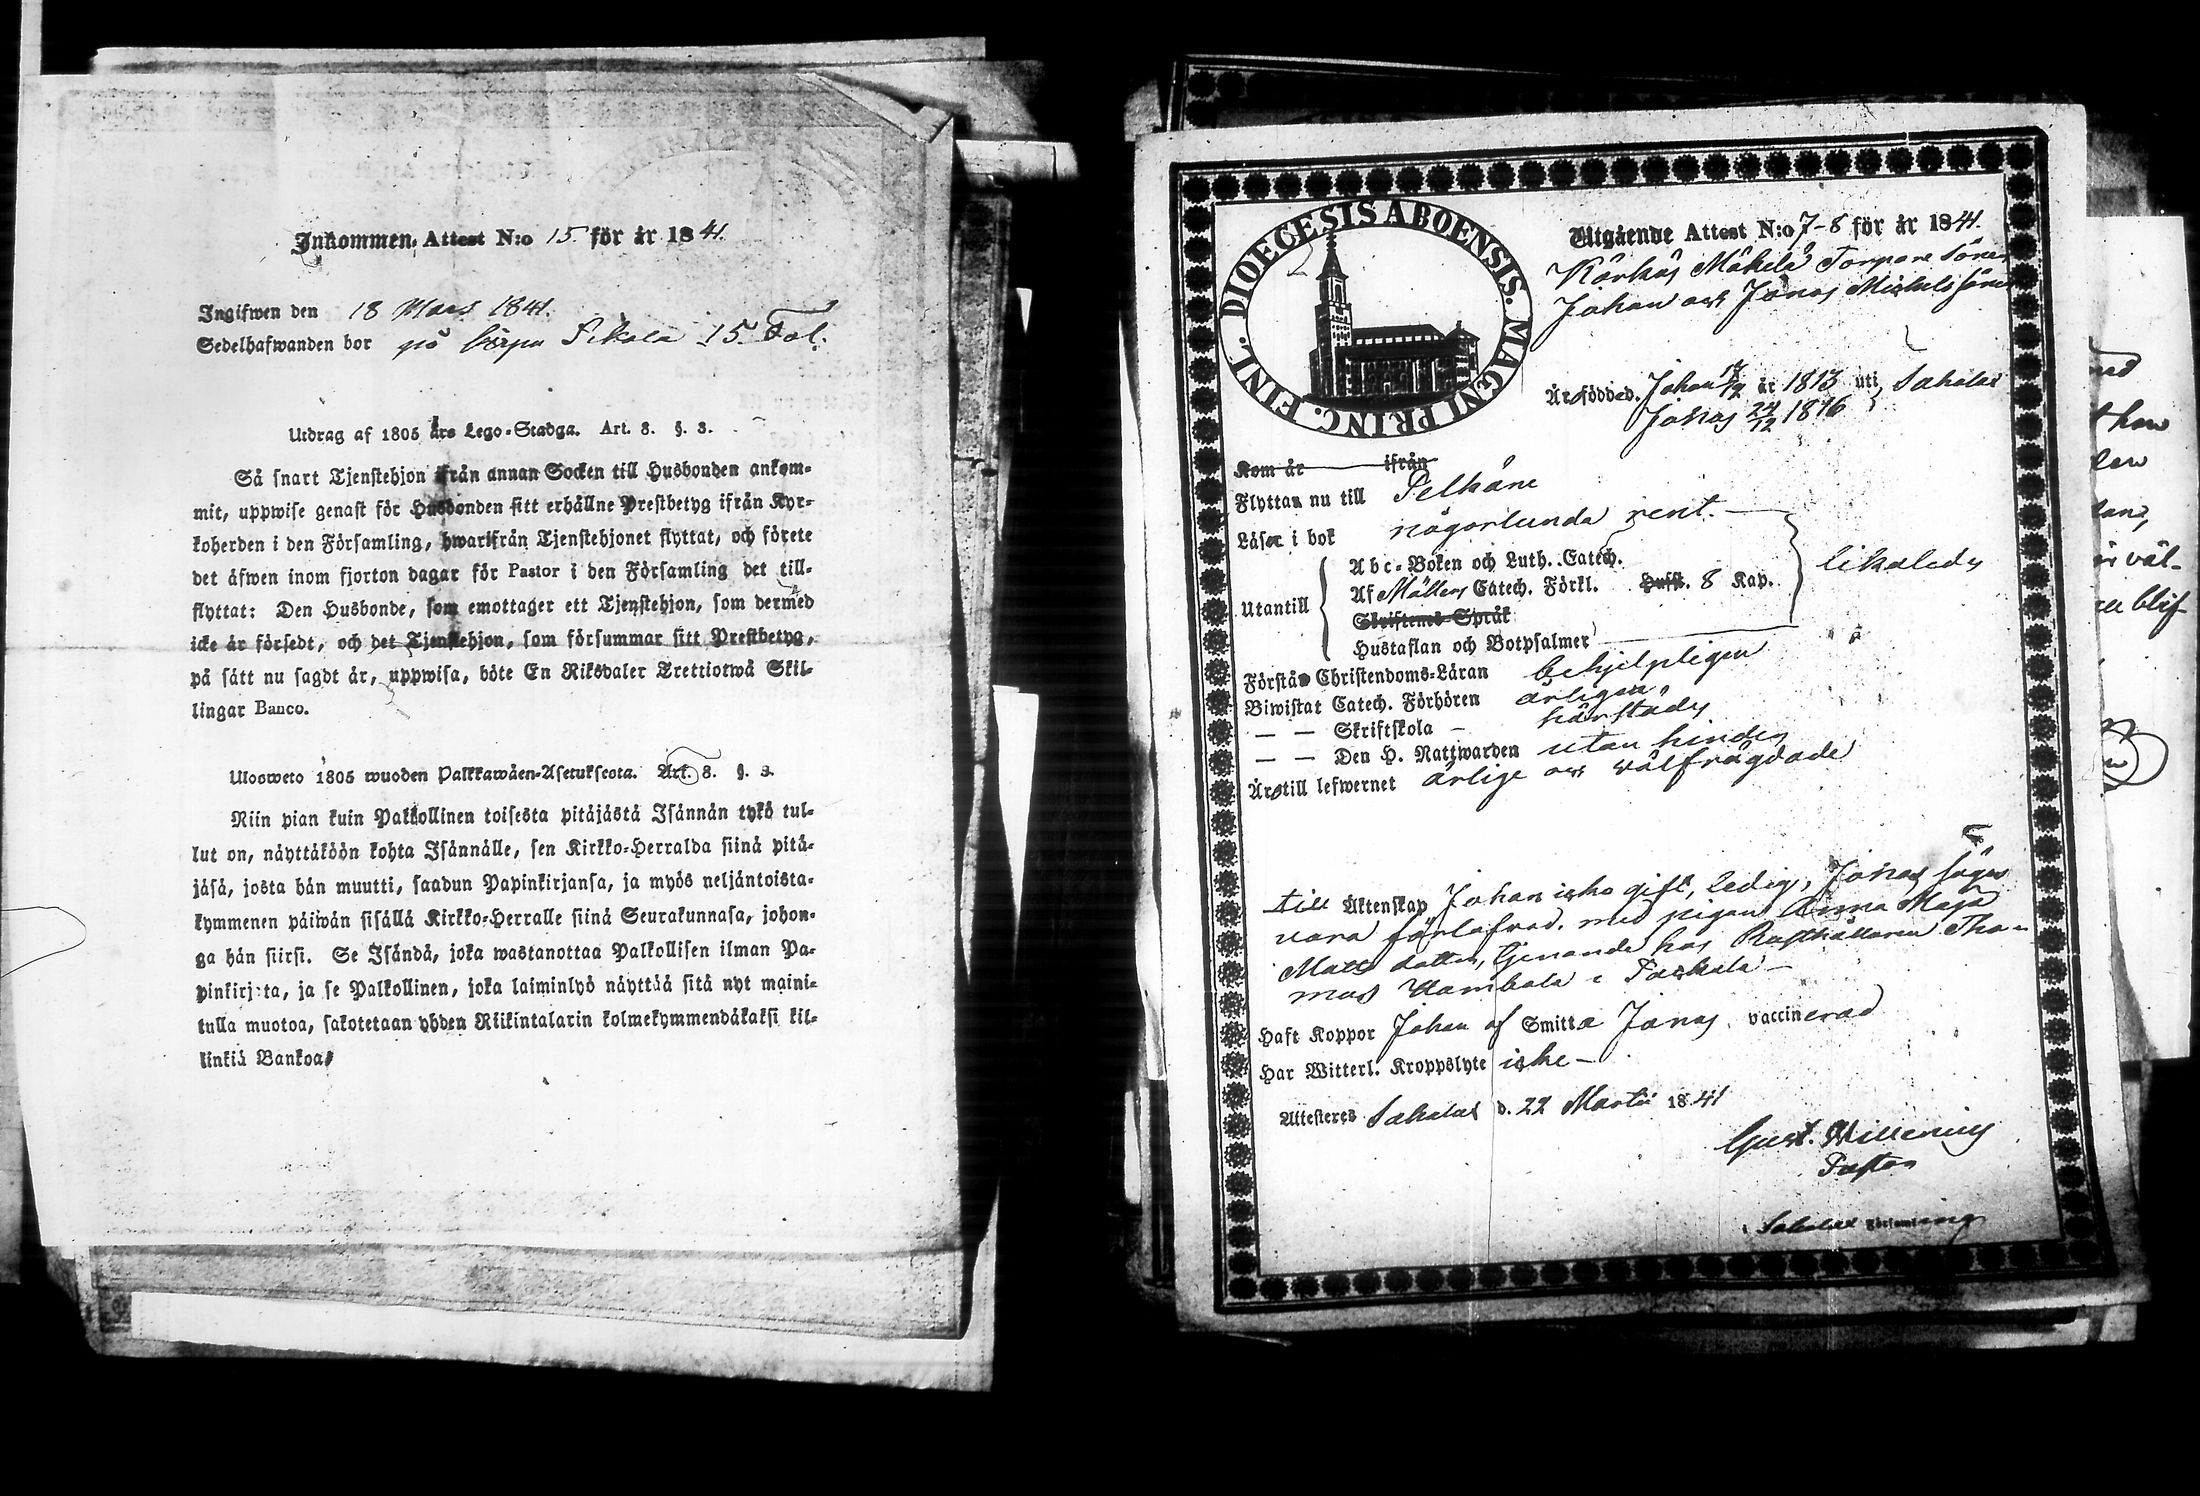 Inkommen, Attest N:o 15. för år 1841.
Ingifwen den 18 Mars 1841.
Sedelhafwanden bor på Sikola 15 Fol.
Utdrag af 1805 års Lego-Stadga. Art. 8. §. 3.
Så snart Tjenstehjon ifrån annan Socken till Husbonden ankom-
mit, uppwise genast för Husbonden sitt erhållne Prestbetyg ifrån Kyr-
koherden i den Församling, hwarifrån Tjenstehjonet flyttat, och förete
det äfwen inom fjorton dagar för Pastor i den Församling det till-
flyttat: Den Husbonde, som emottager ett Tjenstehjon, som dermed
icke är försedt, och det Tjenstehjon, som försummar sitt Prestbetyg,
på sätt nu sagdt är, uppwisa, böte En Riksdaler Trettiotwå Skil-
lingar Banco.
Ulosweto 1805 wuoden Palkkawäen-Asetuksesta. Art. 8. §. 3.
Niin pian kuin Palkollinen toisesta pitäjästä Isännän tykö tul-
lut on, näyttäköön kohta Isännälle, sen Kirkko-Herralda siinä pitä-
jäsä, josta hän muutti, saadun Papinkirjansa, ja myös neljäntoista-
kymmenen päiwän sisällä Kirkko-Herralle siinä Seurakunnasa, johon-
ga hän siirsi. Se Isändä, joka wastanottaa Palkollisen ilman Pa-
pinkirjata, ja se Palkollinen, joka laiminlyö näyttää sitä nyt maini-
tulla muotoa, sakotetaan yhden Riikintalarin kolmekymmendäkaksi kil-
linkiä Bankoa.
DIOECESIS ABOENSIS. MAGNI PRINC. FINL.
Utgående Attest N:o 7-8 för år 1841.
Körkäs Mäkelä Torpare Söner
Johan och Jonas Michelssöner
Äro födde d. Johan är 1813 uti Sahalax
Jonas 24/12 1816
Kom år ifrån
Flyttar nu till Pelkäne
Läser i bok någorlunda rent.
Utantill
Abc-Boken och Luth. Catech.
Af Möllers Catech. Förkl. Husst. 8 Kap.
Skriftenes Språk
Hustaflan och Botpsalmer
likaledes
Förstå Christendoms-Läran behjelpligen
Biwistat Catech. Förhören årligen
— — Skriftskola — härstädes
— — Den H. Nattwarden utan hinder
Äro till lefwernet ärlige och välfrägdade
till Äktenskap Johan icke gift, ledig, Jonas säges
vara förlofvad med pigan Anna Maja
Matts dotter, tjenande hos Rusthållaren Tho-
mas Uambala i Sahala —
Haft Koppor Johan af Smitta Jonas vaccinerad
Har Witterl. Kroppslyte icke —
Attesteres Sahalax d. 22 Martii 1841
Gust. Willenius
Pastor
Sahalax Församling